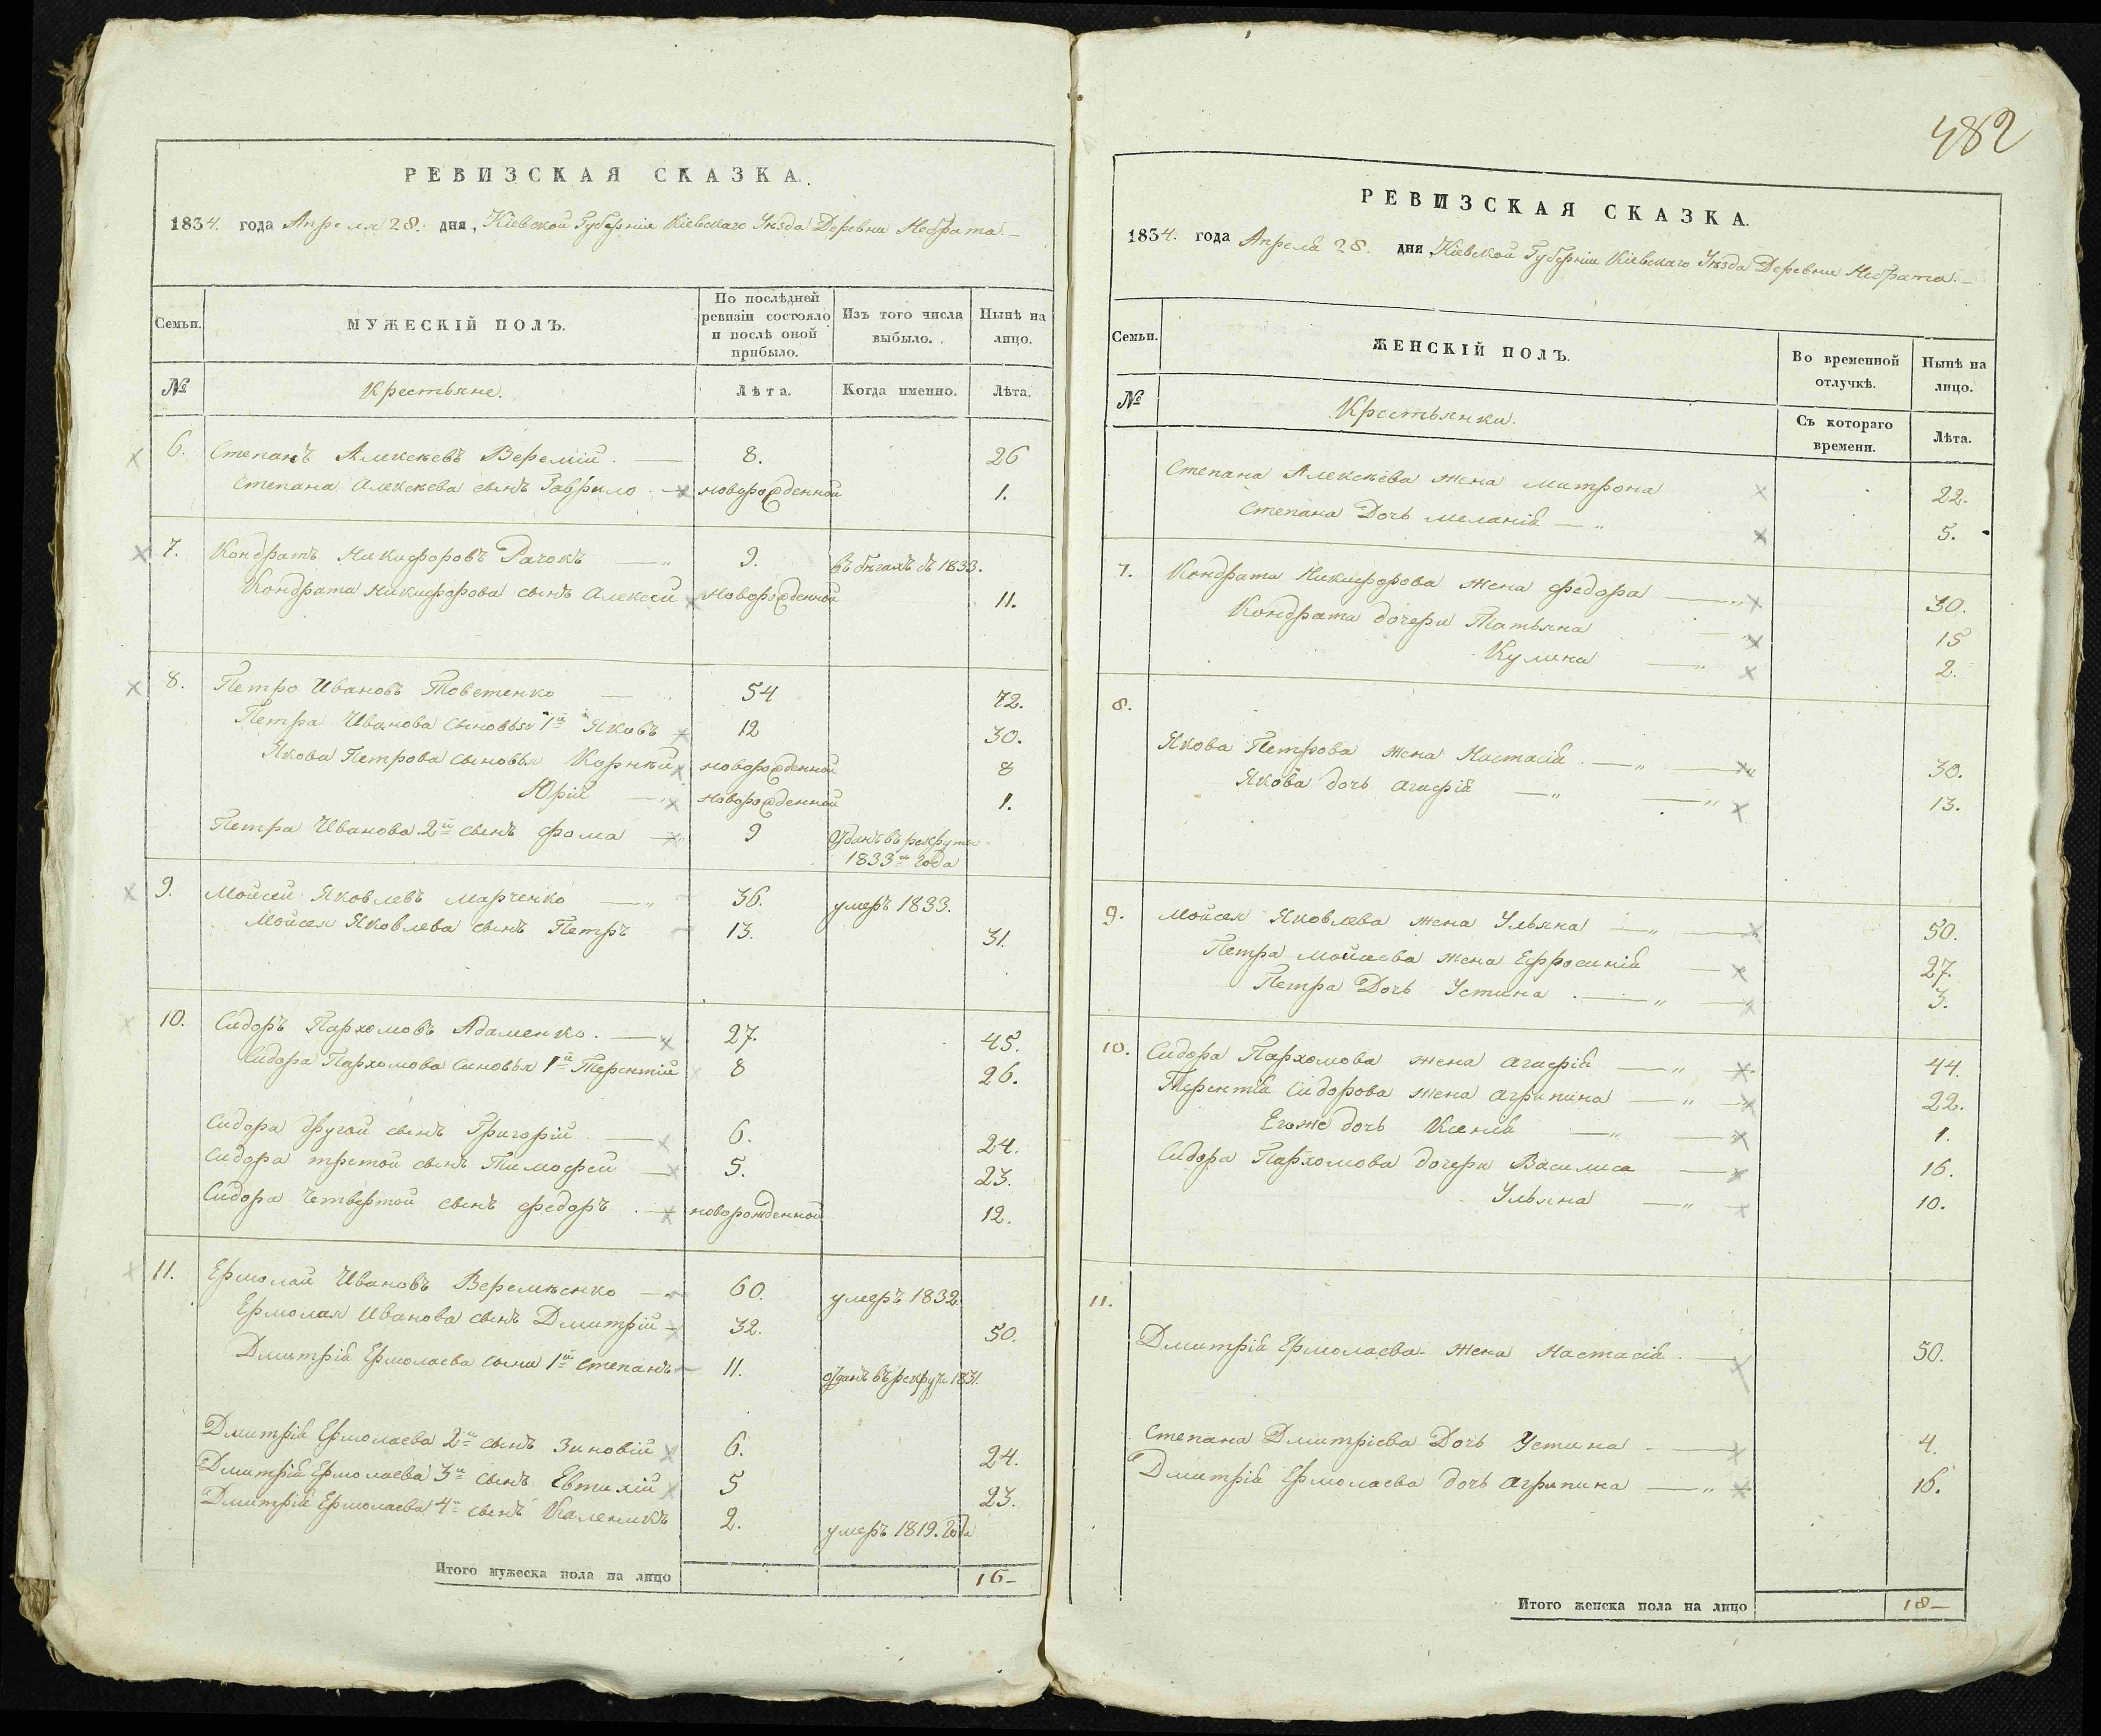 РЕВИЗСКАЯ СКАЗКА.
1834. года Апреля 28. дня, Кіевской Губерніи Кіевскаго Уезда Деревни Небрата.
Семьи. МУЖЕСКІЙ ПОЛЪ. По послѣдней ревизіи состояло и послѣ оной прибыло. Изъ того числа выбыло. Нынѣ на лицо.
№ Крестьяне. Лѣта. Когда именно. Лѣта.
6. Степанъ Алексѣевъ Веремій 8. 26
Степана Алексѣева сынъ Гаврило новорожденной 1.
7. Кондратъ Никифоровъ Рачокъ 9. въ бѣгахъ съ 1833.
Кондрата Никифорова сынъ Алексей новорожденной 11.
8. Петро Ивановъ Товстенко 54 72.
Петра Иванова сыновья 1й Яковъ 12 30.
Якова Петрова сыновья Корнѣй новорожденной 8
Юрій новорожденной 1.
Петра Иванова 2й сынъ Фома 9 Отданъ въ рекруты
1833го года
9. Мойсей Яковлевъ Марченко 36. умеръ 1833.
Мойсея Яковлева сынъ Петръ 13. 31.
10. Сидоръ Пархомовъ Адаменко. 27. 45.
Сидора Пархомова сыновья 1й Терентій 8 26.
Сидора другой сынъ Григорій 6. 24.
Сидора третой сынъ Тимофей 5. 23.
Сидора четвертой сынъ Федоръ новорожденной 12.
11. Ермолай Ивановъ Веремѣенко 60. умеръ 1832.
Ермолая Иванова сынъ Дмитрій 32. 50.
Дмитрія Ермолаева сыны 1й Степанъ 11. отданъ въ рекруты 1831.
Дмитрія Ермолаева 2й сынъ Зиновій 6. 24.
Дмитрія Ермолаева 3й сынъ Евтихій 5 23.
Дмитрія Ермолаева 4й сынъ Каленикъ 2. умеръ 1819. года
Итого мужеска пола на лицо 16
482
РЕВИЗСКАЯ СКАЗКА.
1834. года Апреля 28. дня, Кіевской Губерніи Кіевскаго Уезда Деревни Небрата.
Семьи. ЖЕНСКІЙ ПОЛЪ. Во временной отлучкѣ. Нынѣ на лицо.
№ Крестьянки. Съ котораго времени. Лѣта.
Степана Алексѣева жена Митрона 22.
Степана Дочь Меланія 5.
7. Кондрата Никифорова жена Федора 30.
Кондрата дочери Татьяна 15
Кулина 2.
8.
Якова Петрова жена Настасія 30.
Якова дочь Агафія 13.
9. Мойсея Яковлева жена Ульяна 50.
Петра Мойсеева жена Ефросинія 27.
Петра Дочь Устина 3.
10. Сидора Пархомова жена Агафія 44.
Терентія Сидорова жена Агрипина 22.
Егоже дочь Ксенія 1.
Сидора Пархомова дочери Василиса 16.
Ульяна 10.
11.
Дмитрія Ермолаева жена Настасія 50.
Степана Дмитріева Дочь Устина 4.
Дмитрія Ермолаева дочь Агрипина 16.
Итого женска пола на лицо 18